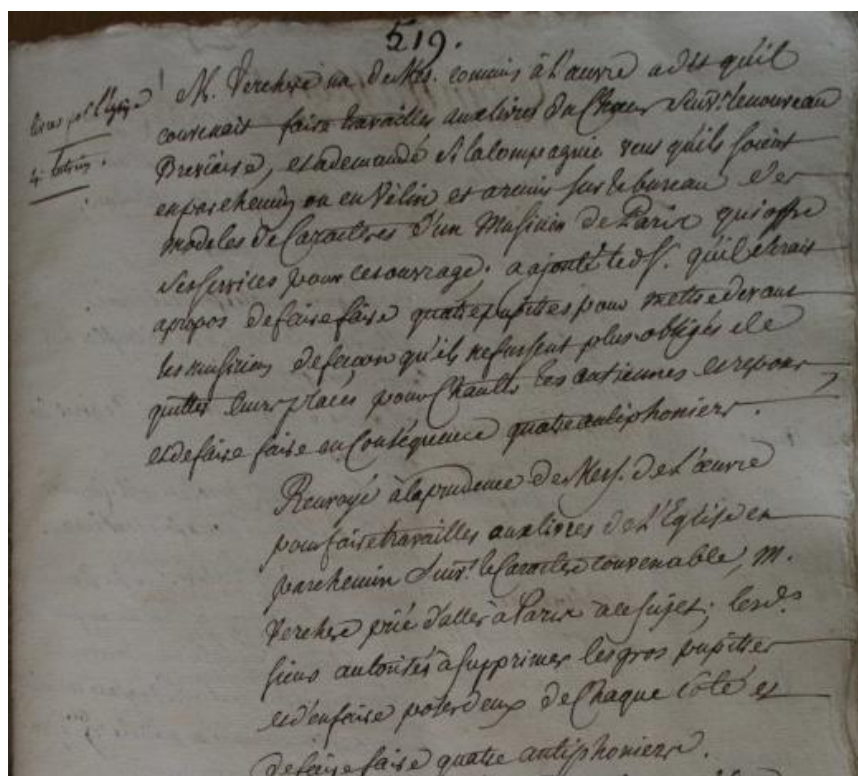 519.
livres pr l'Eglise
4. lutrins.
M. Verchere un de Mrs. commis à l'œuvre a dit qu'il
convenait faire travailler aux livres du Chœur suivt. le nouveau
Breviaire, et a demandé si la compagnie veut qu'ils soient
en parchemin ou en Vélin et a remis sur le bureau des
modeles de Caracteres d'un Musicien de Paris qui offre
ses services pour cet ouvrage; a ajouté led. S. qu'il serait
apropos de faire faire quatre pupitres pour mettre devant
les musiciens de façon qu'ils ne fussent plus obligés de
quitter leurs places pour Chanter les antiennes et repons
et de faire faire en Conséquence quatre antiphoniers.
Renvoyé à la prudence de Mess. de L'œuvre
pour faire travailler aux livres de L'Eglise en
parchemin Suivt. le Caractere convenable, M.
Verchere prié d'aller à Paris à ce sujet; lesds.
sieurs autorisés à supprimer les gros pupitres
et d'en faire poser deux de Chaque côté et
de faire faire quatre antiphoniers.